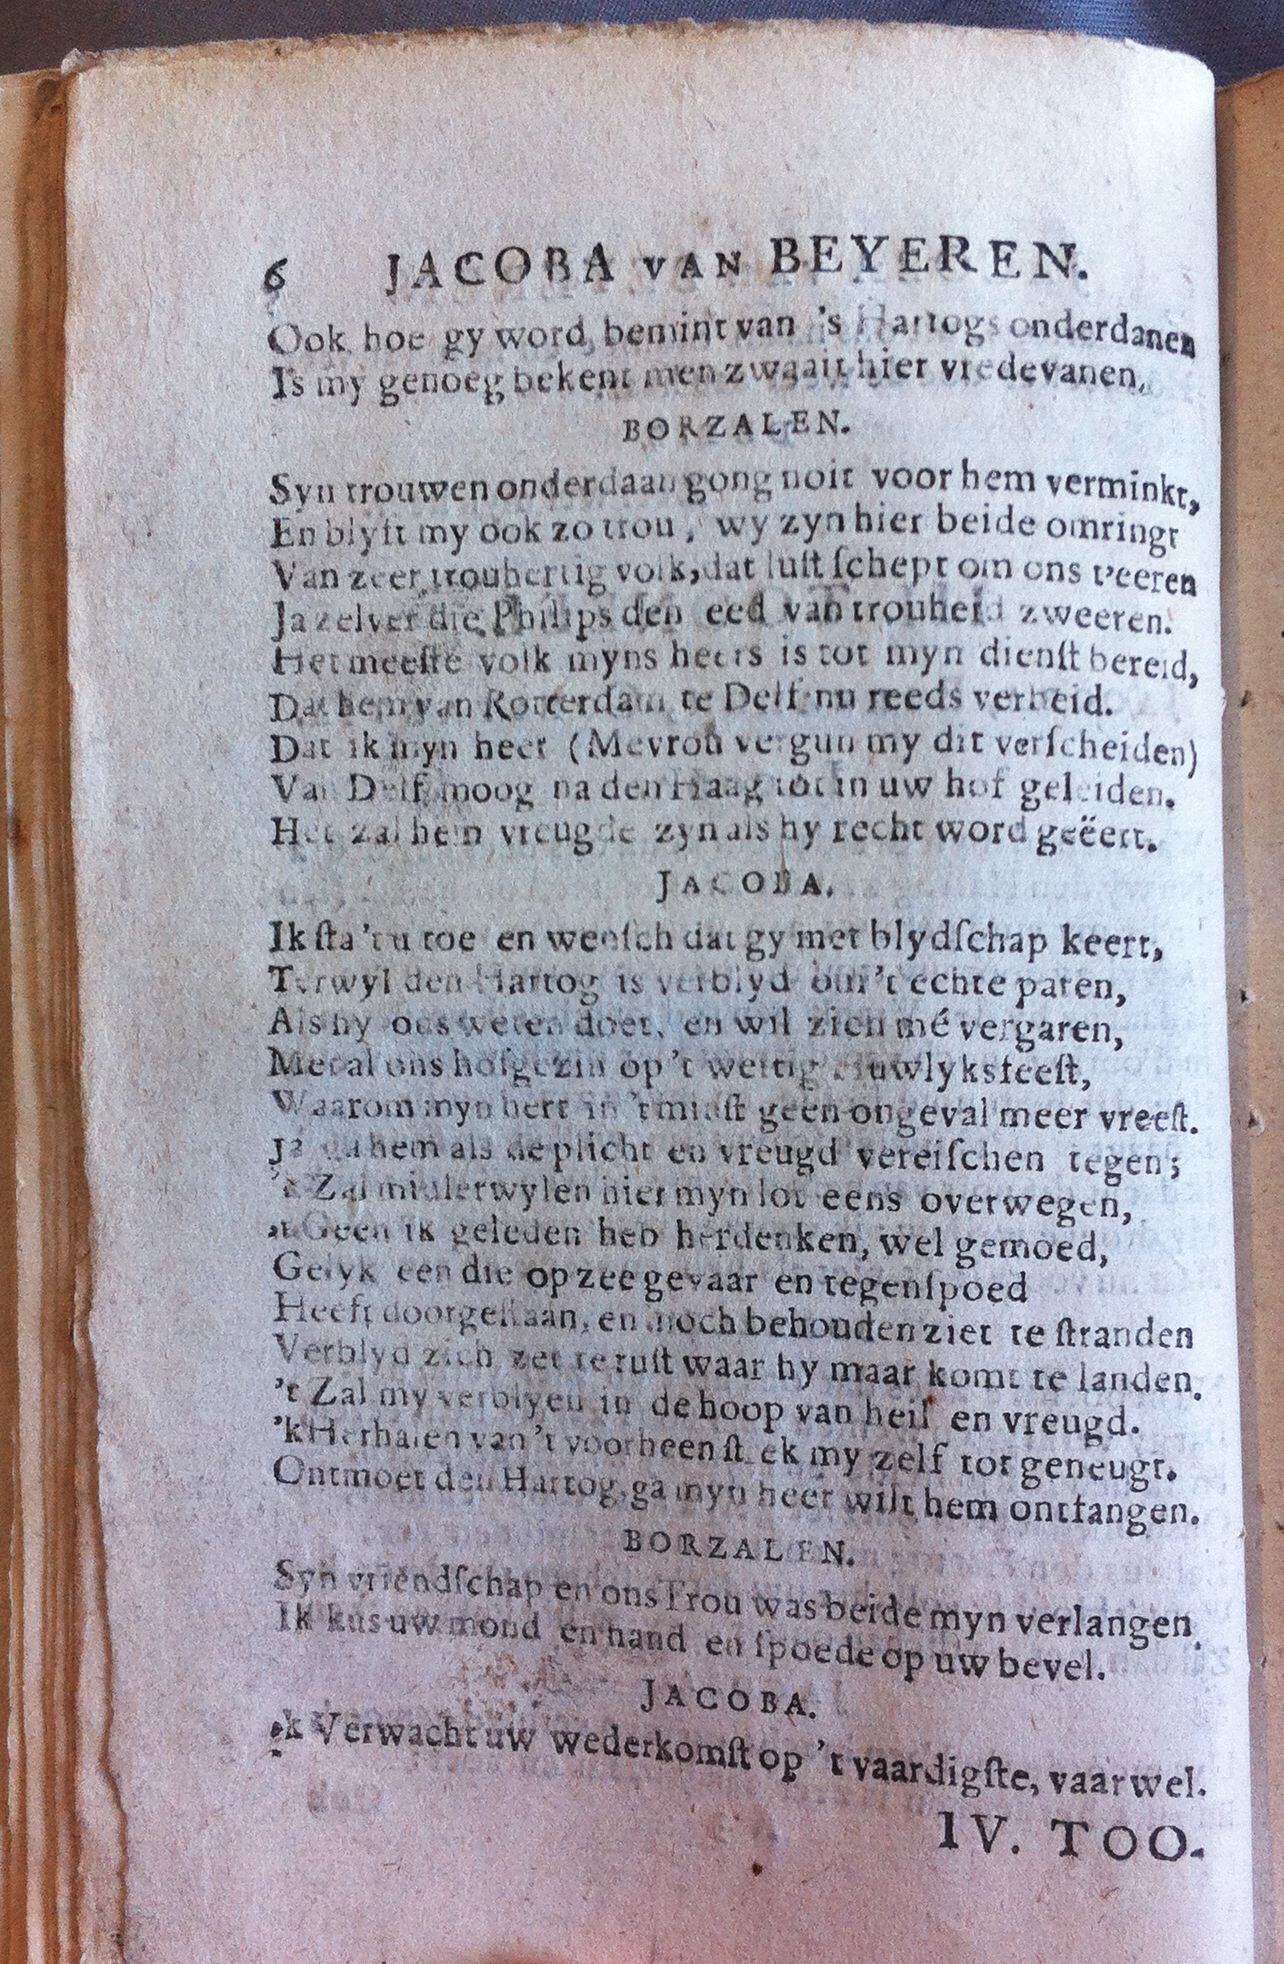 6 JACOBA VAN BEYEREN.
Ook hoe gy word bemint van 's Hartogs onderdanen
Is my genoeg bekent men zwaait hier vredevanen.
BORZALEN.
Syn trouwen onderdaan gong noit voor hem verminkt,
En blyft my ook zo trou, wy zyn hier beide omringt
Van zeer trouhertig volk, dat luſt ſchept om ons t'eeren
Ja zelver die Philips den eed van trouheid zweeren.
Het meeſte volk myns heers is tot myn dienſt bereid,
Dat hem van Rotterdam te Delf nu reeds verbeid.
Dat ik myn heer (Mevrou vergun my dit verſcheiden)
Van Delf moog na den Haag tot in uw hof geleiden.
Het zal hem vreugde zyn als hy recht word geëert.
JACOBA.
Ik ſta 't u toe en wenſch dat gy met blydſchap keert,
Terwyl den Hartog is verblyd om 't echte paren,
Als hy ons weten doet, en wil zich mé vergaren,
Met al ons hofgezin op 't wettig huwlyksfeeſt,
Waarom myn hert in 't minſt geen ongeval meer vreeſt.
Ja ga hem als de plicht en vreugd vereiſchen tegen;
'k Zal midlerwylen hier myn lot eens overwegen,
't Geen ik geleden heb herdenken, wel gemoed,
Gelyk een die op zee gevaar en tegenſpoed
Heeft doorgeſtaan, en noch behouden ziet te ſtranden
Verblyd zich zet te ruſt waar hy maar komt te landen.
't Zal my verblyen in de hoop van heil en vreugd.
'k Herhalen van 't voorheen ſtrek my zelf tot geneugt.
Ontmoet den Hartog, ga myn heer wilt hem ontfangen.
BORZALEN.
Syn vriendſchap en ons Trou was beide myn verlangen.
Ik kus uw mond en hand en ſpoede op uw bevel.
JACOBA.
'k Verwacht uw wederkomſt op 't vaardigſte, vaar wel.
IV. TOO-